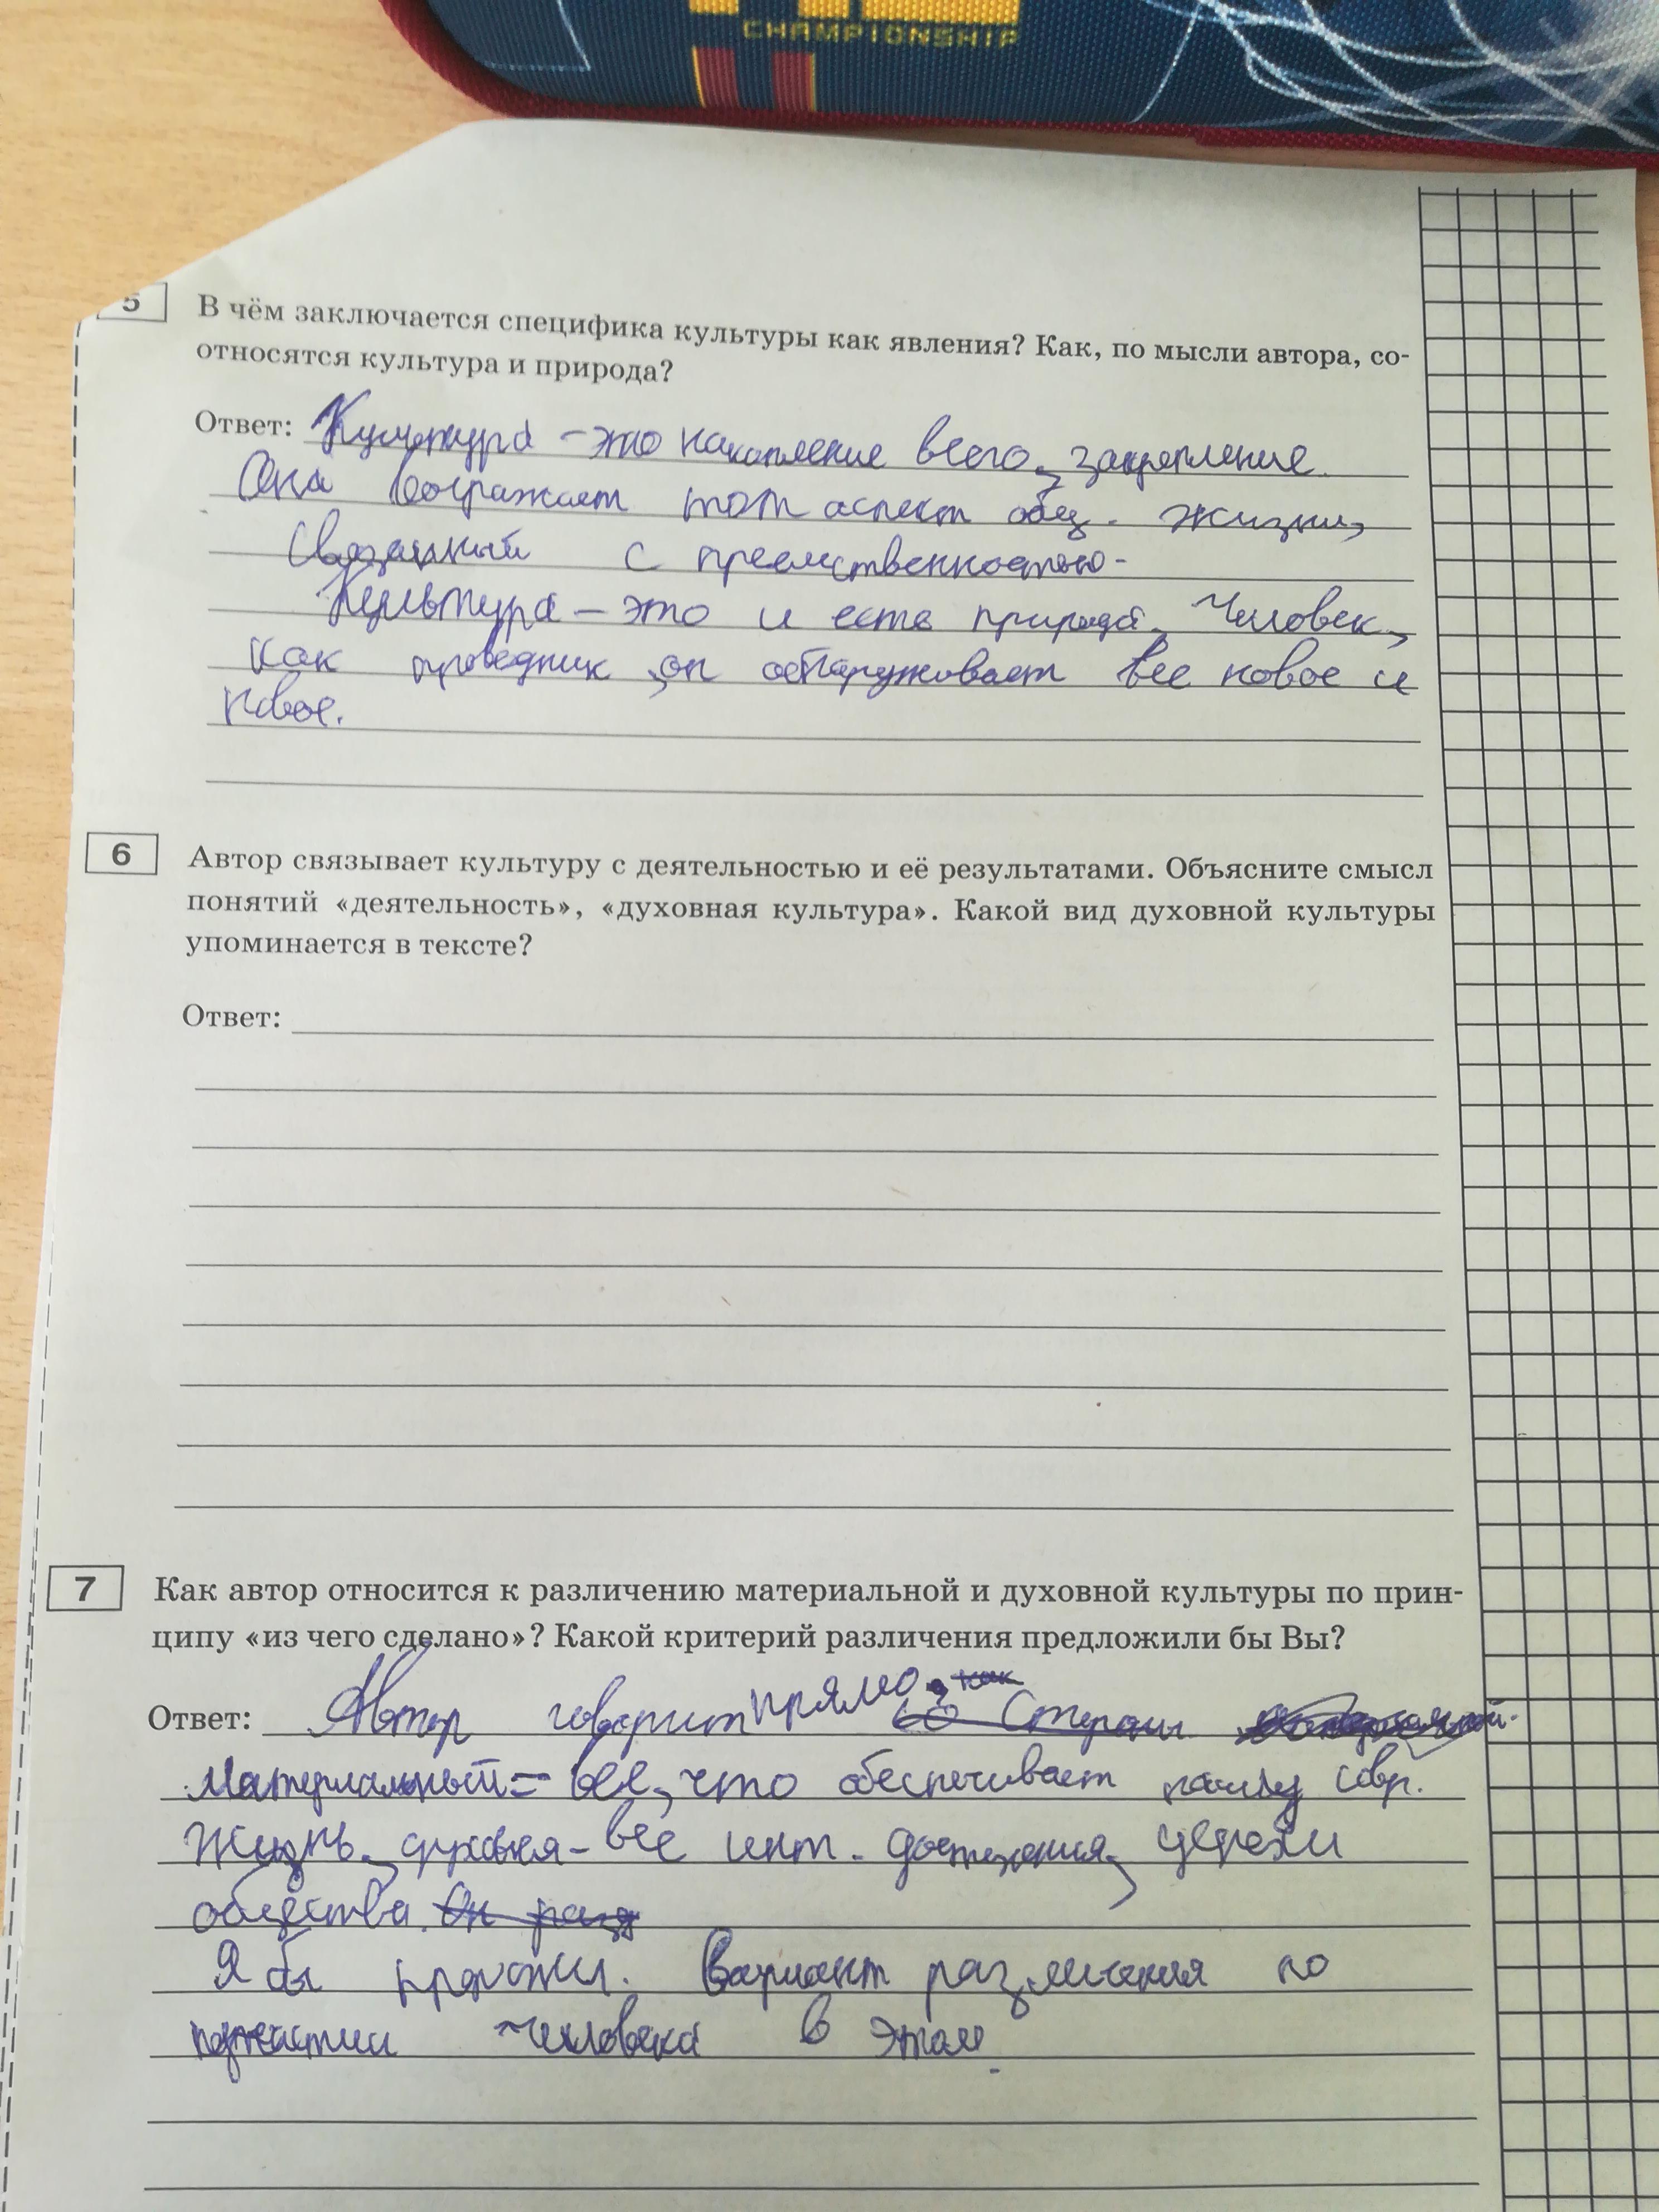 CHAMPIONSHIP
5
В чём заключается специфика культуры как явления? Как, по мысли автора, со-
относятся культура и природа?
Ответ: Культура – это накопление всего, закрепление.
Она выражает тот аспект общ. жизни,
связанный с преемственностью.
Культура – это и есть природа. Человек,
как проводник, он обнаруживает все новое и
новое.
6
Автор связывает культуру с деятельностью и её результатами. Объясните смысл
понятий «деятельность», «духовная культура». Какой вид духовной культуры
упоминается в тексте?
Ответ:
7
Как автор относится к различению материальной и духовной культуры по прин-
ципу «из чего сделано»? Какой критерий различения предложили бы Вы?
Ответ: Автор говорит прямо, как со стороны
материальный = все, что обеспечивает нашу совр.
жизнь, духовная – все инт. достижения,
общества. Он разд
Я бы предложил. вариант различения по
человека в этом.